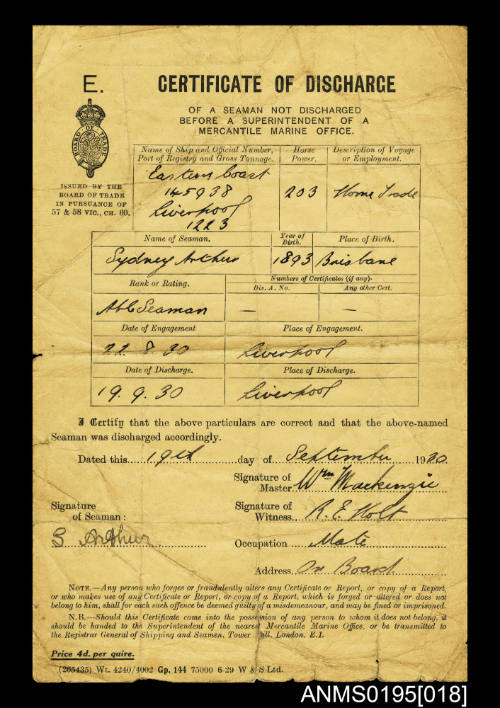 E. CERTIFICATE OF DISCHARGE
OF A SEAMAN NOT DISCHARGED
BEFORE A SUPERINTENDENT OF A
MERCANTILE MARINE OFFICE.
BOARD OF TRADE
ISSUED BY THE
BOARD OF TRADE
IN PURSUANCE OF
57 & 58 VIC., CH. 60.
Name of Ship and Official Number, Port of Registry and Gross Tonnage.
Horse Power.
Description of Voyage or Employment.
Eastern Coast
145938
Liverpool
1223
203
Home Trade
Name of Seaman. Year of Birth. Place of Birth.
Sydney Arthur 1893 Brisbane
Rank or Rating. Numbers of Certificates (if any).
Dis. A. No. Any other Cert.
Ab Seaman — —
Date of Engagement Place of Engagement.
22. 8. 30 Liverpool
Date of Discharge. Place of Discharge.
19. 9. 30 Liverpool
I Certify that the above particulars are correct and that the above-named
Seaman was discharged accordingly.
Dated this 19th day of September 1930
Signature of Master Wm Mackenzie
Signature of Seaman: S Arthur
Signature of Witness R. E. Holt
Occupation Mate
Address On Board
NOTE.—Any person who forges or fraudulently alters any Certificate or Report, or copy of a Report,
or who makes use of any Certificate or Report, or copy of a Report, which is forged or altered or does not
belong to him, shall for each such offence be deemed guilty of a misdemeanour, and may be fined or imprisoned.
N.B.—Should this Certificate come into the possession of any person to whom it does not belong, it
should be handed to the Superintendent of the nearest Mercantile Marine Office, or be transmitted to
the Registrar General of Shipping and Seamen, Tower Hill, London. E.1.
Price 4d. per quire.
(265435) Wt. 4240/4002 Gp. 144 75000 6-29 W & S Ltd.
ANMS0195[018]